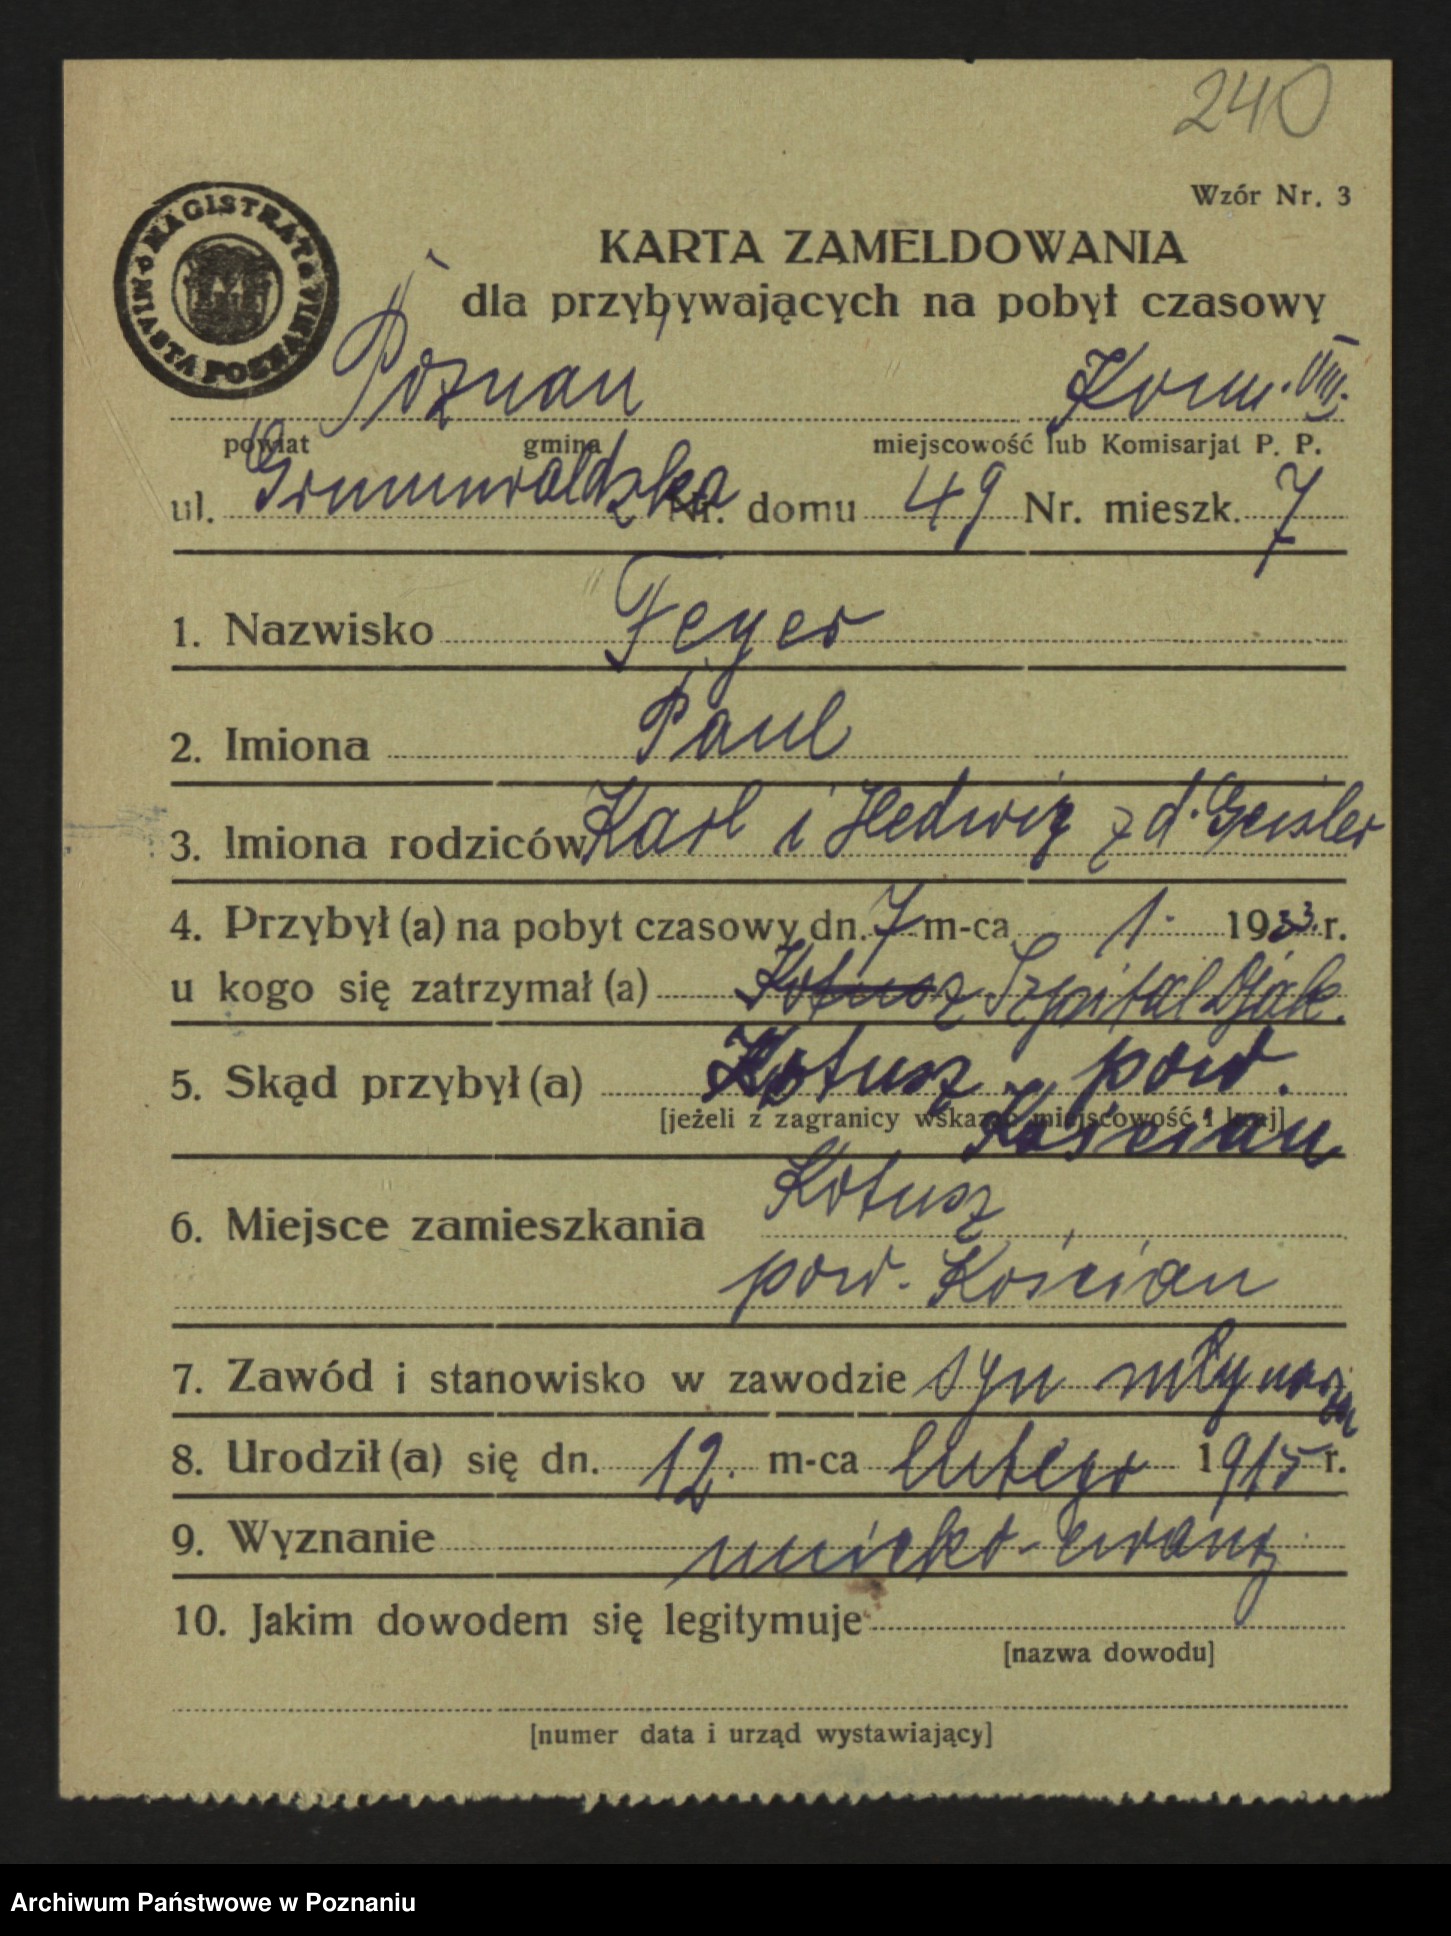 240
Wzór Nr. 3
MAGISTRAT MIASTA POZNANIA
KARTA ZAMELDOWANIA
dla przybywających na pobyt czasowy
Poznań Kom. VIII.
powiat gmina miejscowość lub Komisarjat P. P.
ul. Grunwaldzka Nr. domu 49 Nr. mieszk. 7
1. Nazwisko Feyer
2. Imiona Paul
3. Imiona rodziców Karl i Hedwig z d. Geisler
4. Przybył (a) na pobyt czasowy dn. 7 m-ca 1. 1933. r.
u kogo się zatrzymał (a) Kotusz Szpital Djak.
5. Skąd przybył (a) Kotusz pow.
[jeżeli z zagranicy wskazać miejscowość i kraj]
Kościan
6. Miejsce zamieszkania Kotusz
pow. Kościan
7. Zawód i stanowisko w zawodzie syn młynarza
8. Urodził (a) się dn. 12. m-ca lutego 1915 r.
9. Wyznanie
10. Jakim dowodem się legitymuje
[nazwa dowodu]
[numer data i urząd wystawiający]
Archiwum Państwowe w Poznaniu